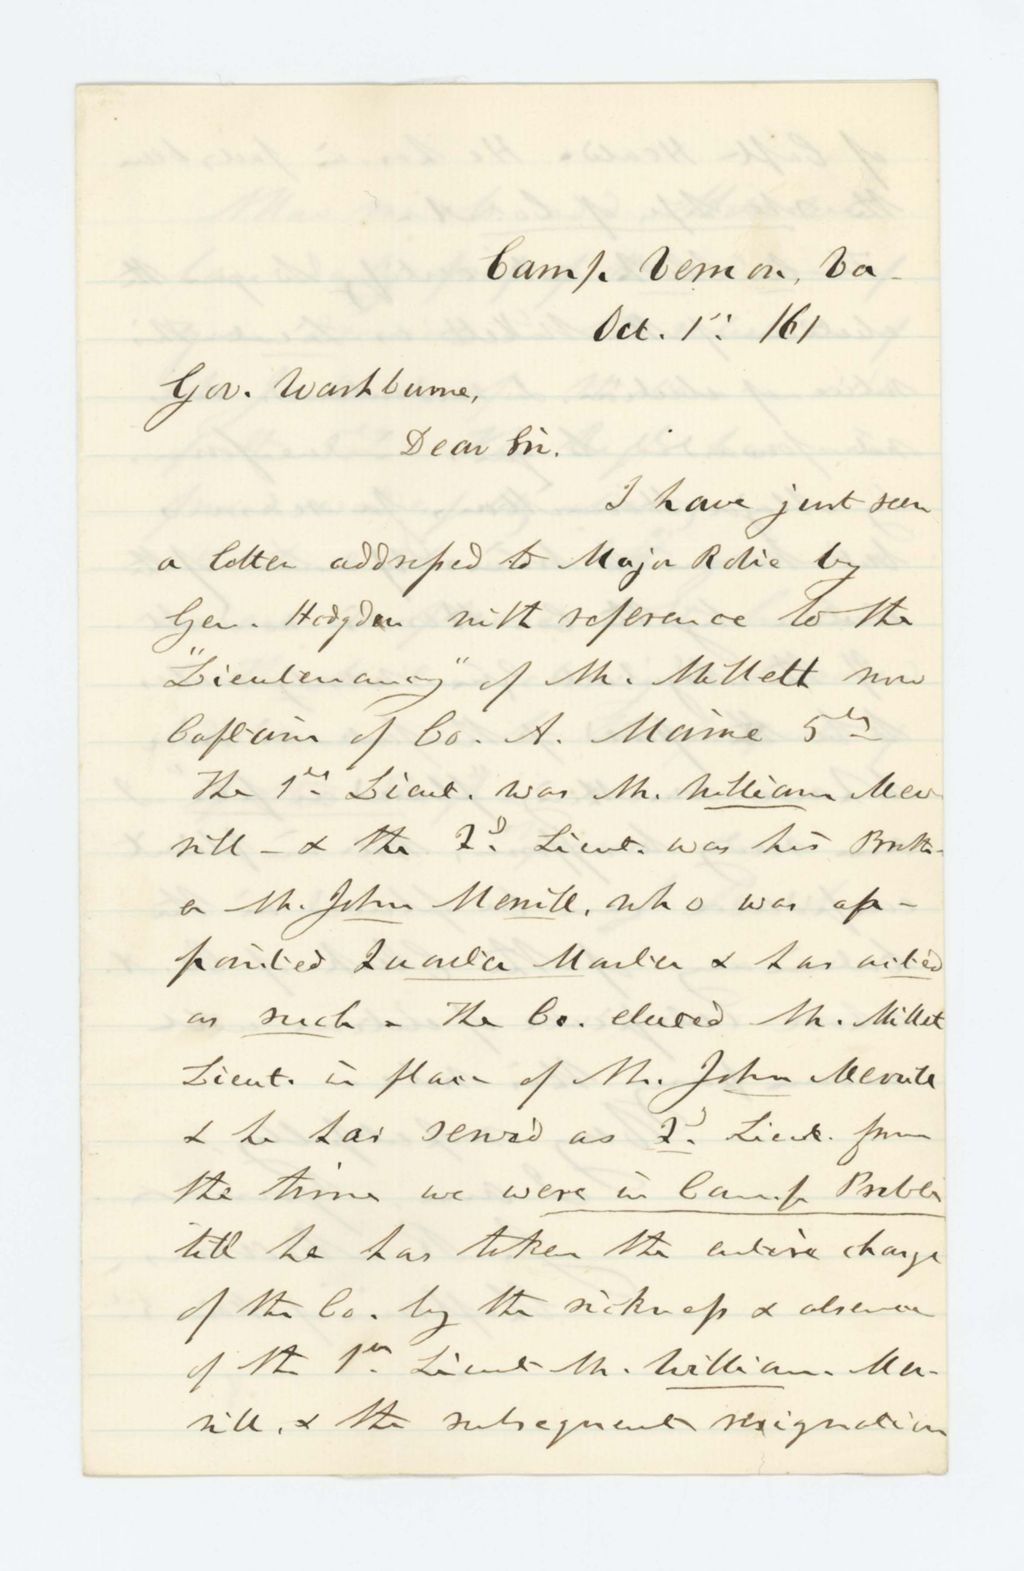 Camp Vernon, Va.
Oct. 1st. /61
Gov. Washburne,
Dear Sir.
I have just seen
a letter addressed to Major Robie by
Gen. Hodgden with reference to the
"Lieutenancy" of Mr. Millett now
Captain of Co. A. Maine 5th
The 1st. Lieut. was Mr. William Mer
rill - & the 2d. Lieut. was his Broth-
er Mr. John Merrill, who was ap-
pointed Quarter Master & has acted
as such - The Co. elected Mr. Millet
Lieut. in place of Mr. John Merrill
& he has served as 2d. Lieut. from
the time we were in Camp Preble
till he has taken the entire charge
of the Co. by the sickness & absence
of the 1st. Lieut Mr. William. Mer-
rill, & the subsequent resignation